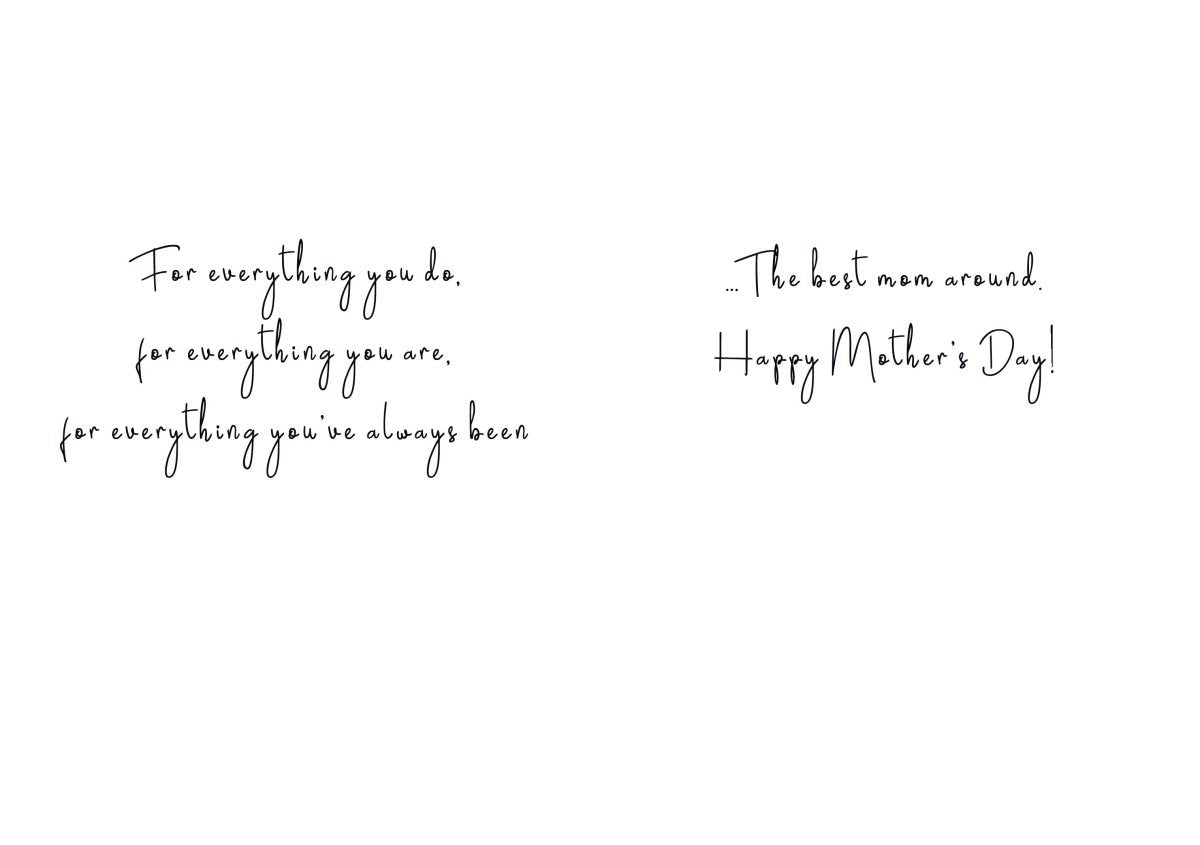 For everything you do,
for everything you are,
for everything you've always been
...The best mom around.
Happy Mother's Day!